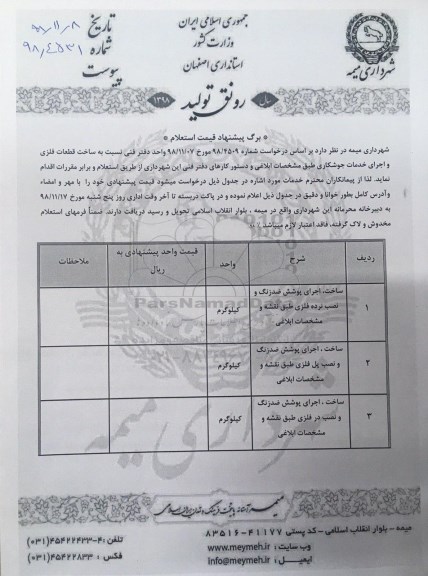 جمهوری اسلامی ایران
وزارت کشور
استانداری اصفهان
شهرداری میمه
تاریخ ۹۸/۱۱/۸
شماره ۹۸/۴۵۳۱
پیوست
سال رونق تولید ۱۳۹۸
« برگ پیشنهاد قیمت استعلام »
شهرداری میمه در نظر دارد بر اساس درخواست شماره ۹۸/۴۵۰۹ مورخ ۹۸/۱۱/۰۷ واحد دفتر فنی نسبت به ساخت قطعات فلزی
و اجرای خدمات جوشکاری طبق مشخصات ابلاغی و دستور کارهای دفتر فنی این شهرداری از طریق استعلام و برابر مقررات اقدام
نماید. لذا از پیمانکاران محترم خدمات مورد اشاره در جدول ذیل درخواست میشود قیمت پیشنهادی خود را با مهر و امضاء
وآدرس کامل بطور خوانا و دقیق در جدول ذیل اعلام نموده و در پاکت دربسته تا آخر وقت اداری روز پنج شنبه مورخ ۹۸/۱۱/۱۷
به دبیرخانه محرمانه این شهرداری واقع در میمه ، بلوار انقلاب اسلامی تحویل و رسید دریافت دارند. ضمناً فرمهای استعلام
مخدوش و لاک گرفته، فاقد اعتبار لازم میباشد.
ردیف شرح واحد قیمت واحد پیشنهادی به ریال ملاحظات
۱ ساخت، اجرای پوشش ضدزنگ و
نصب نرده فلزی طبق نقشه و کیلوگرم
مشخصات ابلاغی
۲ ساخت ، اجرای پوشش ضدزنگ
و نصب پل فلزی طبق نقشه و کیلوگرم
مشخصات ابلاغی
۳ ساخت ، اجرای پوشش ضدزنگ
و نصب در فلزی طبق نقشه و کیلوگرم
مشخصات ابلاغی
ParsNamad
میمه - بلوار انقلاب اسلامی - کد پستی ۴۱۱۷۷-۸۳۵۱۶
تلفن :۴-۴۵۴۲۲۴۳۳(۰۳۱)
وب سایت : www.meymeh.ir
فکس : ۴۵۴۲۲۸۳۳(۰۳۱)
ایمیل : info@meymeh.ir